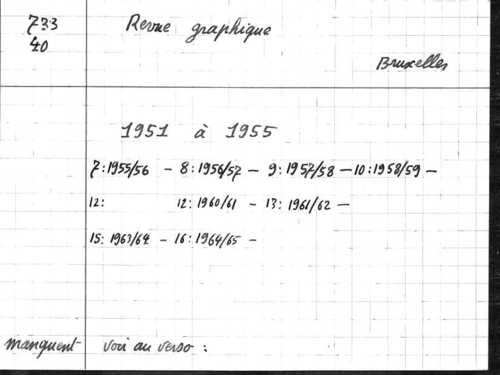 733
40
Revue graphique
Bruxelles
1951 à 1955
7:1955/56 - 8:1956/57 - 9:1957/58 - 10:1958/59 -
12: 12:1960/61 - 13:1961/62 -
15:1963/64 - 16:1964/65 -
manquent voir au verso :